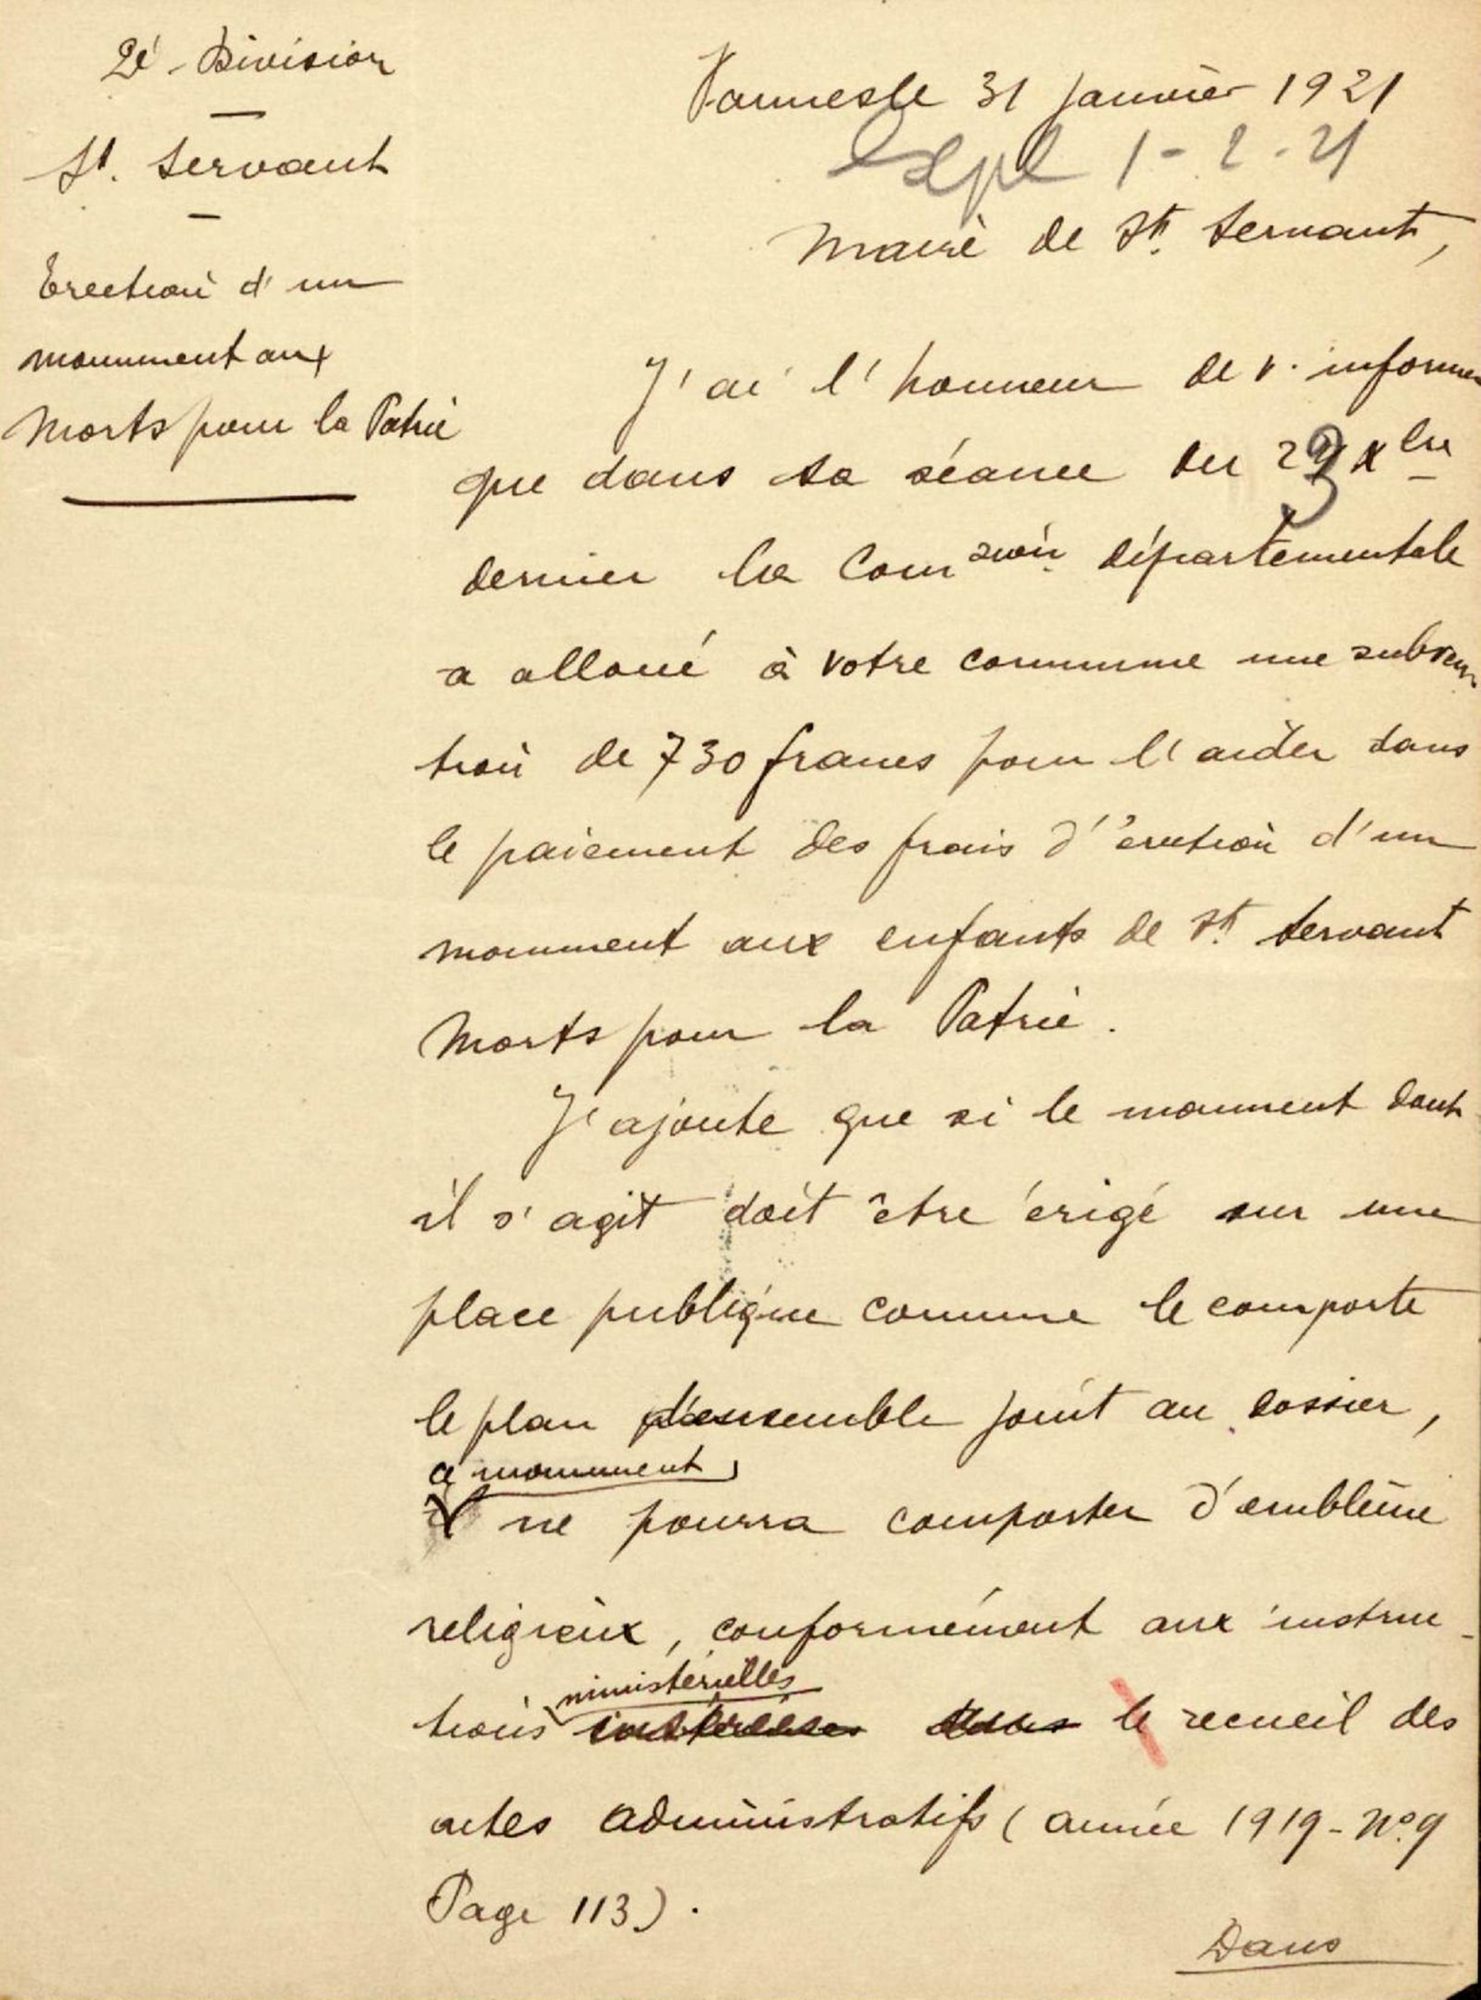 2e Division
St. Servant
Erection d'un
monument aux
Morts pour la Patrie
Vannes le 31 Janvier 1921
Expé 1-2-21
Maire de St. Servant,
J'ai l'honneur de v. informer
que dans sa séance du 23 Xbre
dernier la Comson départementale
a alloué à votre commune une subven
tion de 730 francs pour l'aider dans
le paiement des frais d'érection d'un
monument aux enfants de St. Servant
Morts pour la Patrie.
J'ajoute que si le monument dont
il s'agit doit être érigé sur une
place publique comme le comporte
le plan d'ensemble joint au dossier,
ce monument
ne pourra comporter d'emblème
religieux, conformément aux instruc-
ministérielles
tions insérées dans le recueil des
actes administratifs (année 1919 - No 9
Page 113).
Dans